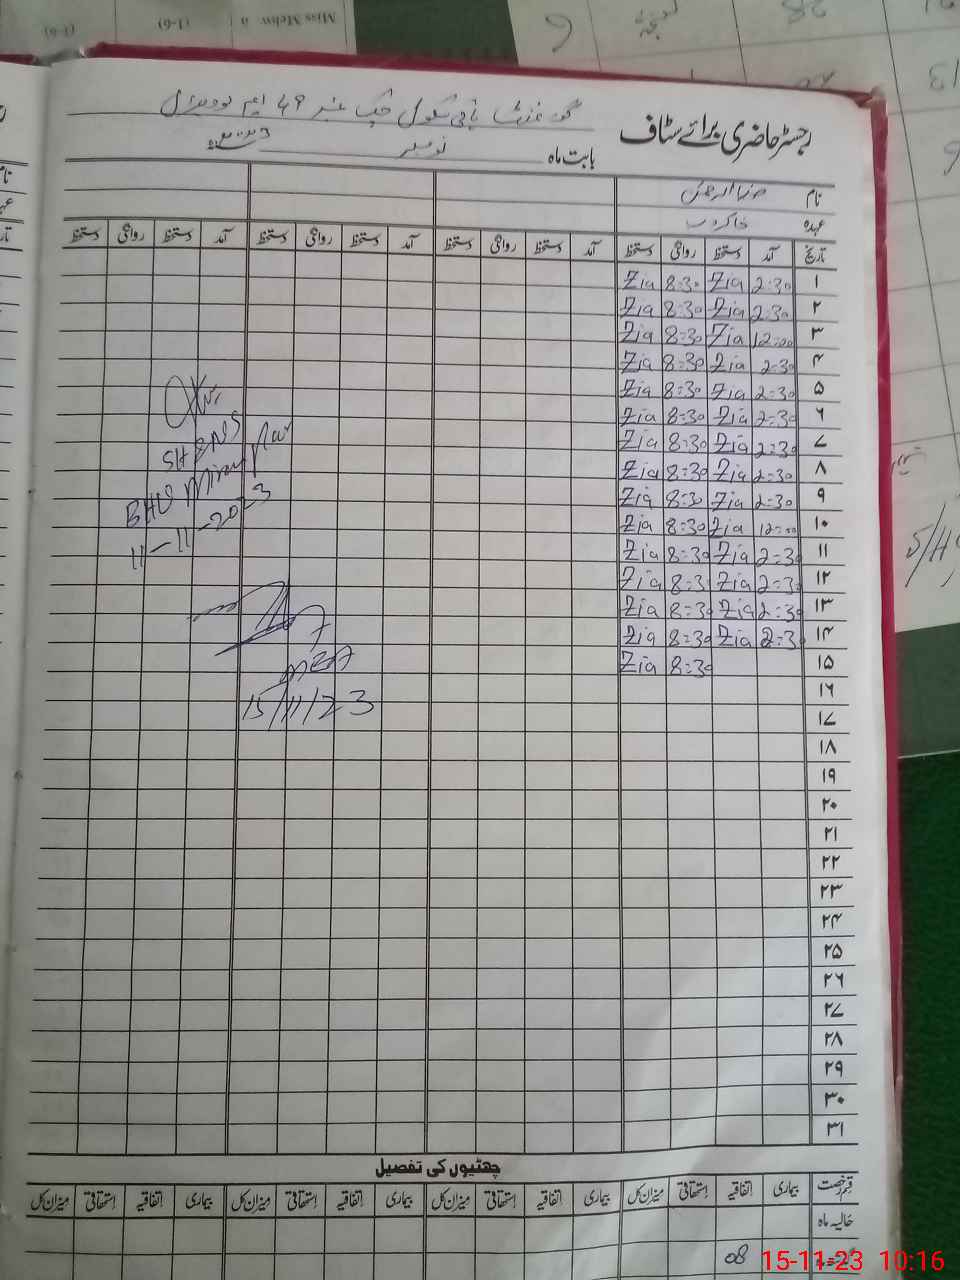 Miss Mehw
(1-6)
(1-6)
28
13
6
گورنمنٹ ہائی سکول چک نمبر 49 ایم
رجسٹر حاضری برائے سٹاف
بابت ماہ نومبر
نام ضیاالرحمن
عہدہ خاکروب
تاریخ آمد دستخط روانگی دستخط آمد دستخط روانگی دستخط آمد دستخط روانگی دستخط آمد دستخط روانگی دستخط
۱ 2:30 Zia 8:30 Zia
۲ 2:30 Zia 8:30 Zia
۳ 12:00 Zia 8:30 Zia
۴ 2:30 Zia 8:30 Zia
۵ 2:30 Zia 8:30 Zia
۶ 2:30 Zia 8:30 Zia
۷ 2:30 Zia 8:30 Zia
۸ 2:30 Zia 8:30 Zia
۹ 2:30 Zia 8:30 Zia
۱۰ 12:00 Zia 8:30 Zia
۱۱ 2:30 Zia 8:30 Zia
۱۲ 2:30 Zia 8:30 Zia
۱۳ 2:30 Zia 8:30 Zia
۱۴ 2:30 Zia 8:30 Zia
۱۵ 8:30 Zia
۱۶
۱۷
۱۸
۱۹
۲۰
۲۱
۲۲
۲۳
۲۴
۲۵
۲۶
۲۷
۲۸
۲۹
۳۰
۳۱
SH&NS
BHU
11-11-2023
MEA
15/11/23
چھٹیوں کی تفصیل
قسم رخصت بیماری اتفاقیہ استحقاقی میزان کل بیماری اتفاقیہ استحقاقی میزان کل بیماری اتفاقیہ استحقاقی میزان کل بیماری اتفاقیہ استحقاقی میزان کل
حالیہ ماہ
08
15-11-23 10:16